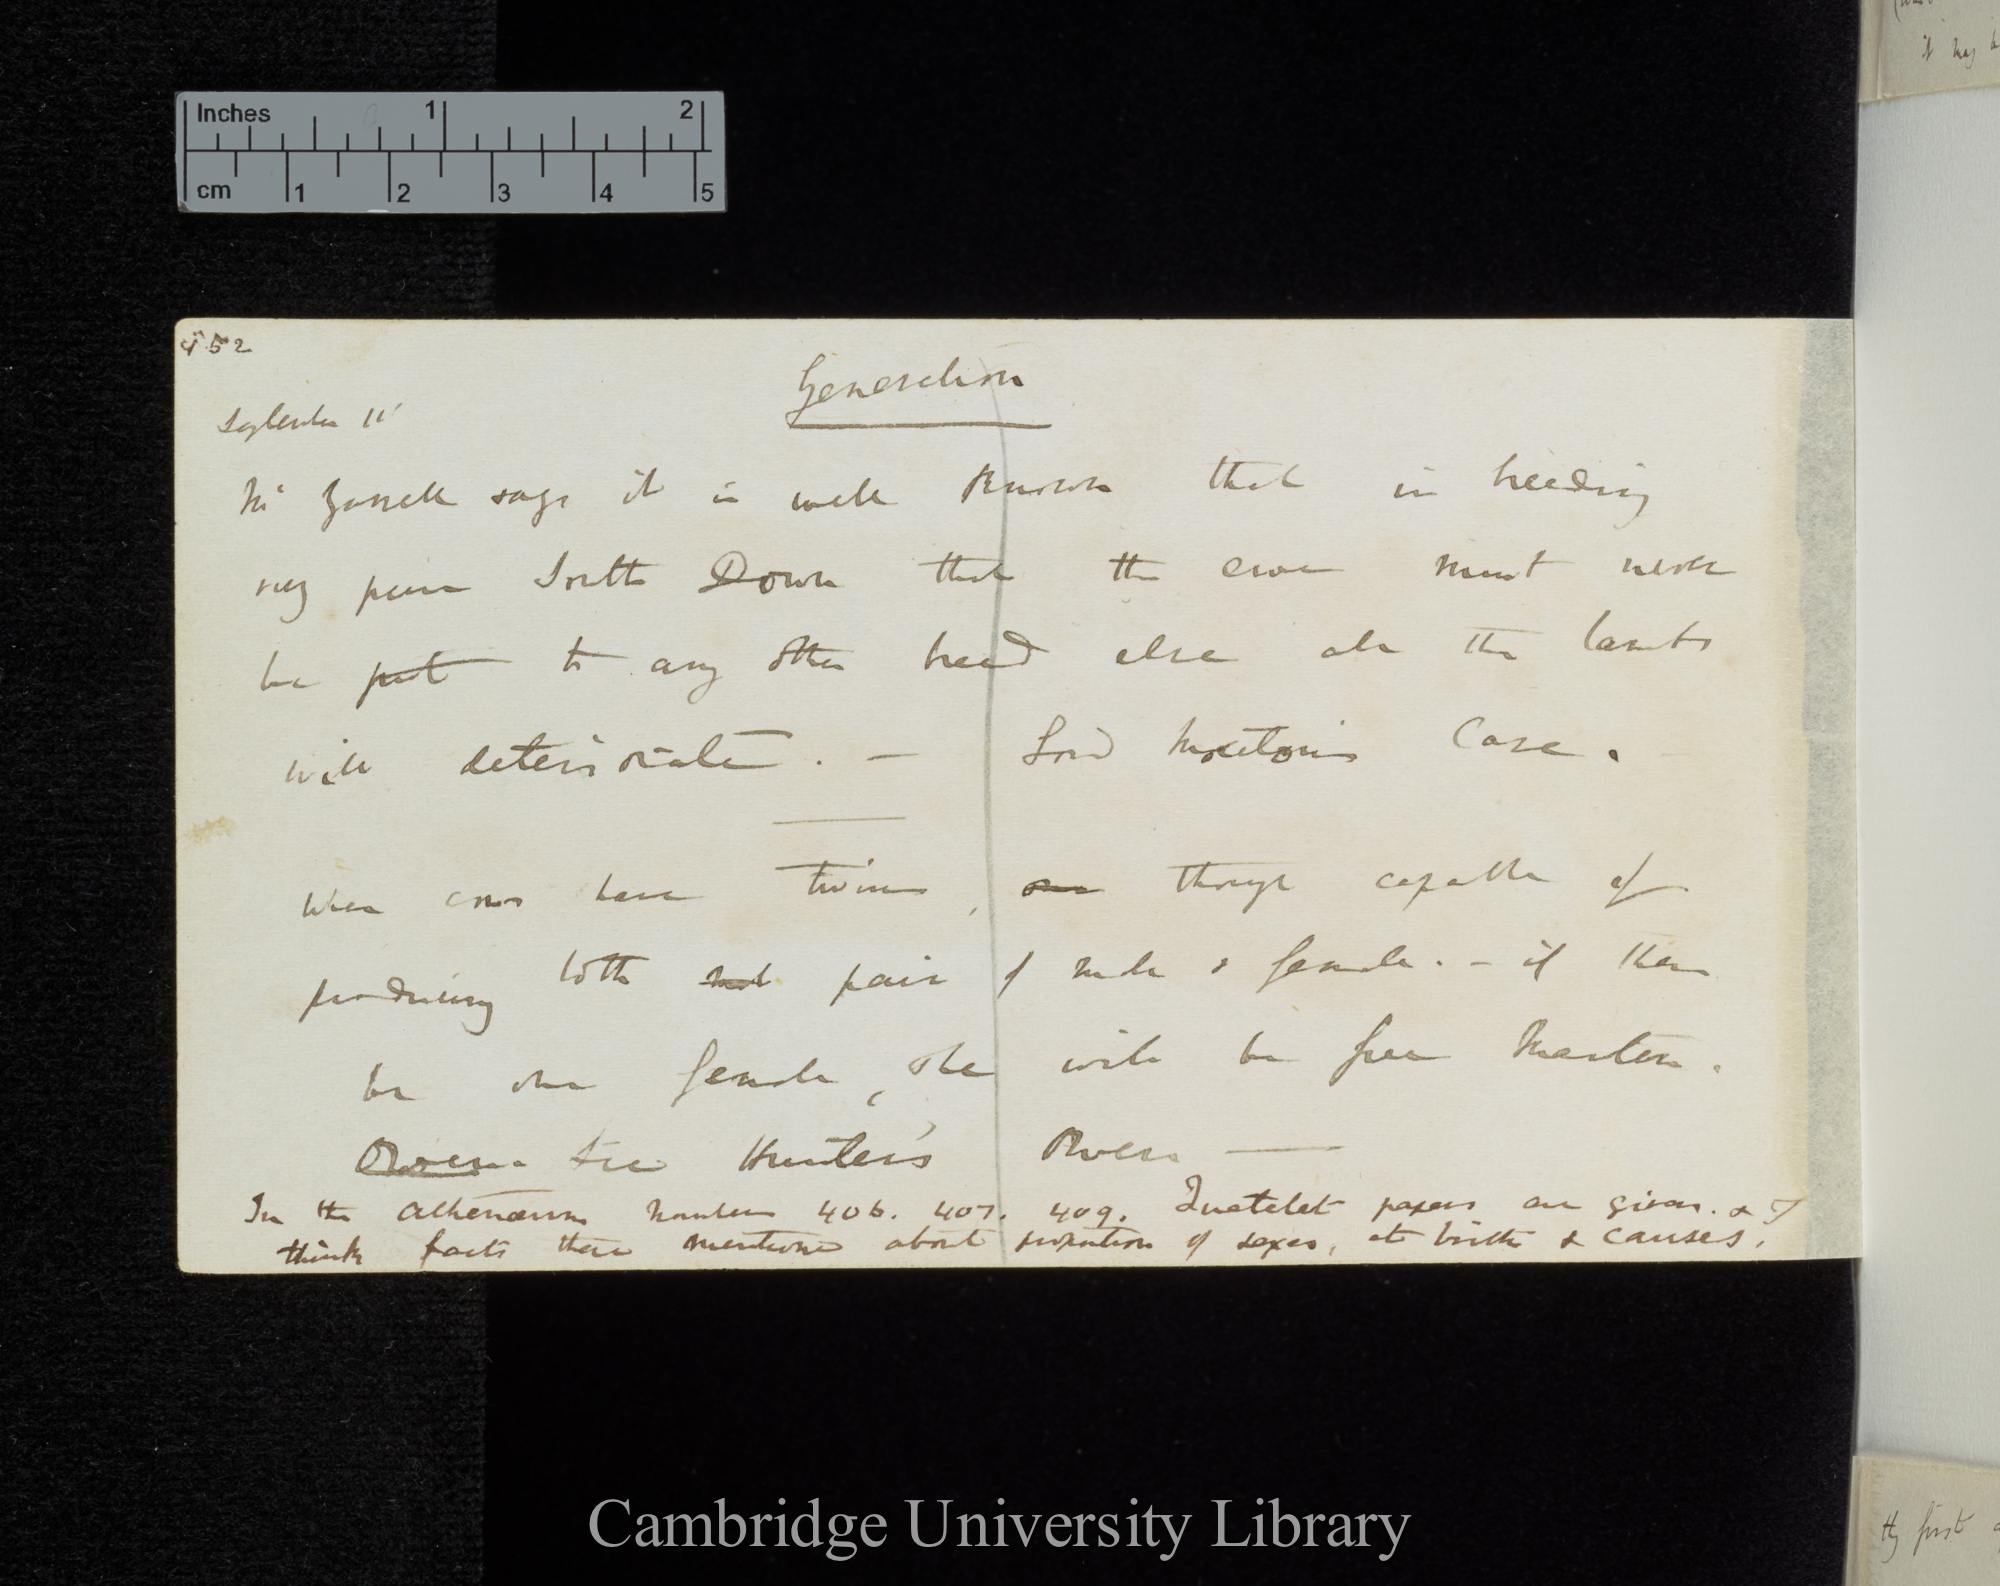 Inches 1 2
cm 1 2 3 4 5
(was
it may b
452
Generation
September 11
Mr Yarrell says it is well known that in breeding
very pure South Down that the ewe must never
be put to any other breed else all the lambs
will deteriorate. — Lord Moreton's Case.
When cows have twins, one though capable of
producing both pair of male & female. — if there
be one female, she will be free Marten.
Owen. See Hunter's Owen —
In the Athenæum Numbers 406. 407. 409. Quetelet papers are given. & I
think facts there mentioned about proportion of sexes, at birth & causes.
first
Cambridge University Library